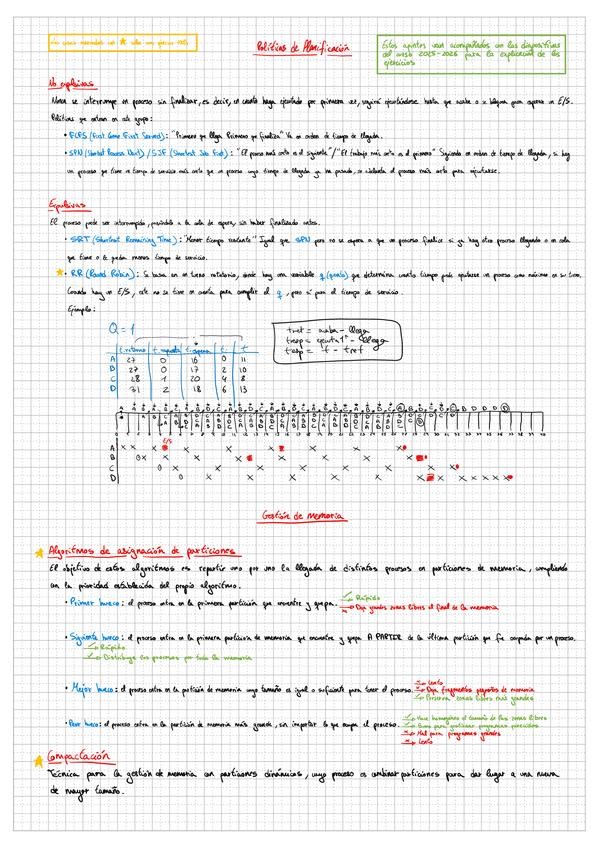 Políticas de Planificación
Estos apuntes van acompañados con las diapositivas
del curso 2025-2026 para la explicación de los
ejercicios
No expulsivas
Nunca se interrumpe un proceso sin finalizar, es decir, en cuanto haya ejecutado por primera vez, seguirá ejecutándose hasta que acabe o se bloquee para esperar un E/S.
Políticas que entran en este grupo:
• FCFS (First Come First Served): "Primero que llega Primero que finaliza" Va en orden de tiempo de llegada.
• SPN (Shortest Process Next) / SJF (Shortest Job First): "El proceso más corto es el siguiente"/"El trabajo más corto es el primero" Siguiendo en orden de tiempo de llegada, si hay
un proceso que tiene un tiempo de servicio más corto que un proceso cuyo tiempo de llegada ya ha pasado, se adelanta el proceso más corto para ejecutarse.
Expulsivas
El proceso puede ser interrumpido, pasándolo a la cola de espera, sin haber finalizado antes.
• SRT (Shortest Remaining Time): "Menor tiempo restante" Igual que SPN pero no se espera a que un proceso finalice si ya hay otro proceso llegando o en cola
que tiene o le queda menos tiempo de servicio.
• RR (Round Robin): Se basa en un turno rotatorio, donde hay una variable q (quanto) que determina cuanto tiempo puede ejecutarse un proceso como máximo en su turno.
Cuando hay un E/S, este no se tiene en cuenta para cumplir el q, pero sí para el tiempo de servicio.
Ejemplo:
Q = 1
tret = acaba - llega
tresp = ejecuta 1ª - llega
tesp = t - tret
t. retorno t. respuesta t. espera t. t
A 27 0 16 0 11
B 27 0 17 2 10
C 28 1 20 4 8
D 31 2 18 6 13
E/S
A
B
C
D
Gestión de memoria
Algoritmos de asignación de particiones
El objetivo de estos algoritmos es repartir uno por uno la llegada de distintos procesos en particiones de memoria, cumpliendo
con la prioridad establecida del propio algoritmo.
• Primer hueco: el proceso entra en la primera partición que encuentre y quepa.
Rápido
Deja grandes zonas libres al final de la memoria
• Siguiente hueco: el proceso entra en la primera partición de memoria que encuentre y quepa A PARTIR de la última partición que fue ocupada por un proceso.
Rápido
Distribuye los procesos por toda la memoria
• Mejor hueco: el proceso entra en la partición de memoria cuyo tamaño es igual o suficiente para tener el proceso.
Lento
Deja fragmentos pequeños de memoria
Preserva zonas libres más grandes
• Peor hueco: el proceso entra en la partición de memoria más grande, sin importar lo que ocupe el proceso.
Hace homogéneo el tamaño de las zonas libres
Bueno para gestionar programas parecidos
Mal para programas grandes
Lento
Compactación
Técnica para la gestión de memoria con particiones dinámicas, cuyo proceso es combinar particiones para dar lugar a una nueva
de mayor tamaño.